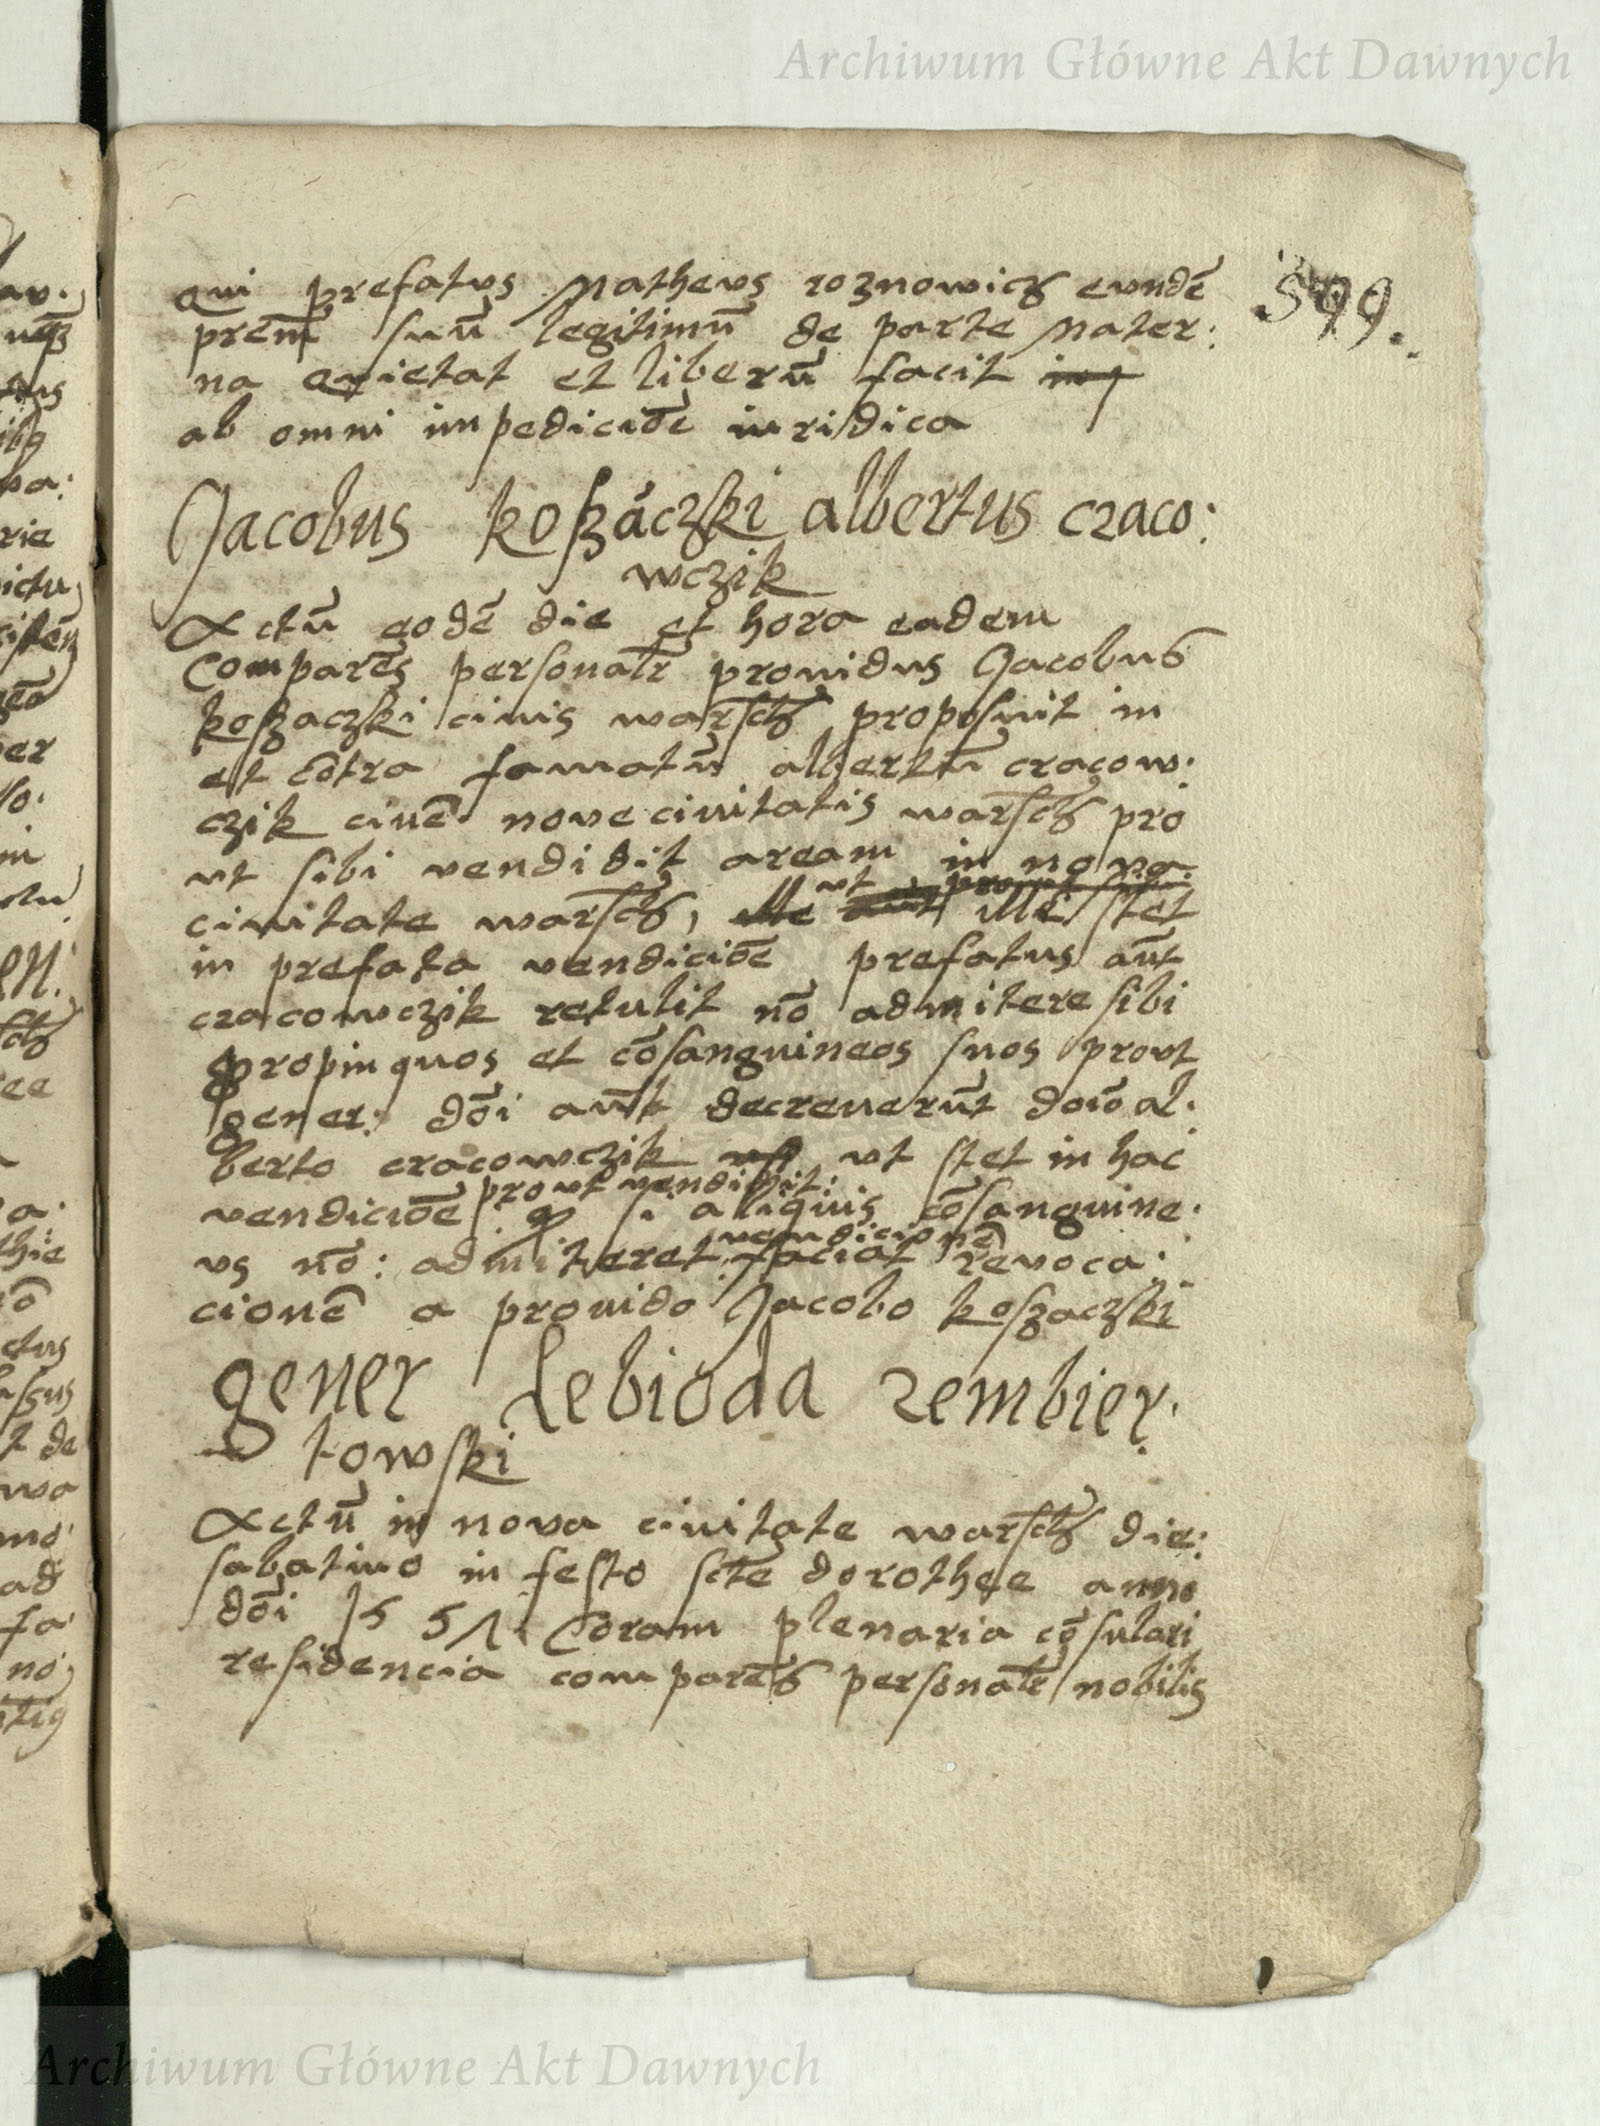 Archiwum Główne Akt Dawnych
599.
qui prefatus Matheus roznowicz eundē
prēm suū legitimū de parte Mater:
na qwietat et liberū facit
ab omni impediciōe iuridica
Jacobus koszaczski albertus craco:
wczik
Actū eodē die et hora eadem
Comparēs personalr prouidus Jacobus
koszaczski ciuis warsch proposuit in
et cōtra famatū albertū cracow:
czik ciuē noue ciuitatis warsch pro
ut sibi vendidit aream in nova
ciuitate warsch, ut ille stet
in prefata vendiciōe prefatus aūt
cracowczik retulit nō admitere sibi
propinquos et cōsanguineos suos prout
gener: dōi aūt decreuerūt doīo al:
berto cracowczik ut stet in hac
vendiciōe prout vendidit: si aliquis cōsanguine:
us nō: admitteret vendicionē faciat revoca:
cionē a prouido Jacobo koszaczski
gener Lebioda Zembier:
towski
Actū in nova ciuitate warsch die:
sabatino in festo scte dorothee anno
dōi 1551 Coram plenaria cōsulari
residencia comparēs personalr nobilis
Archiwum Główne Akt Dawnych